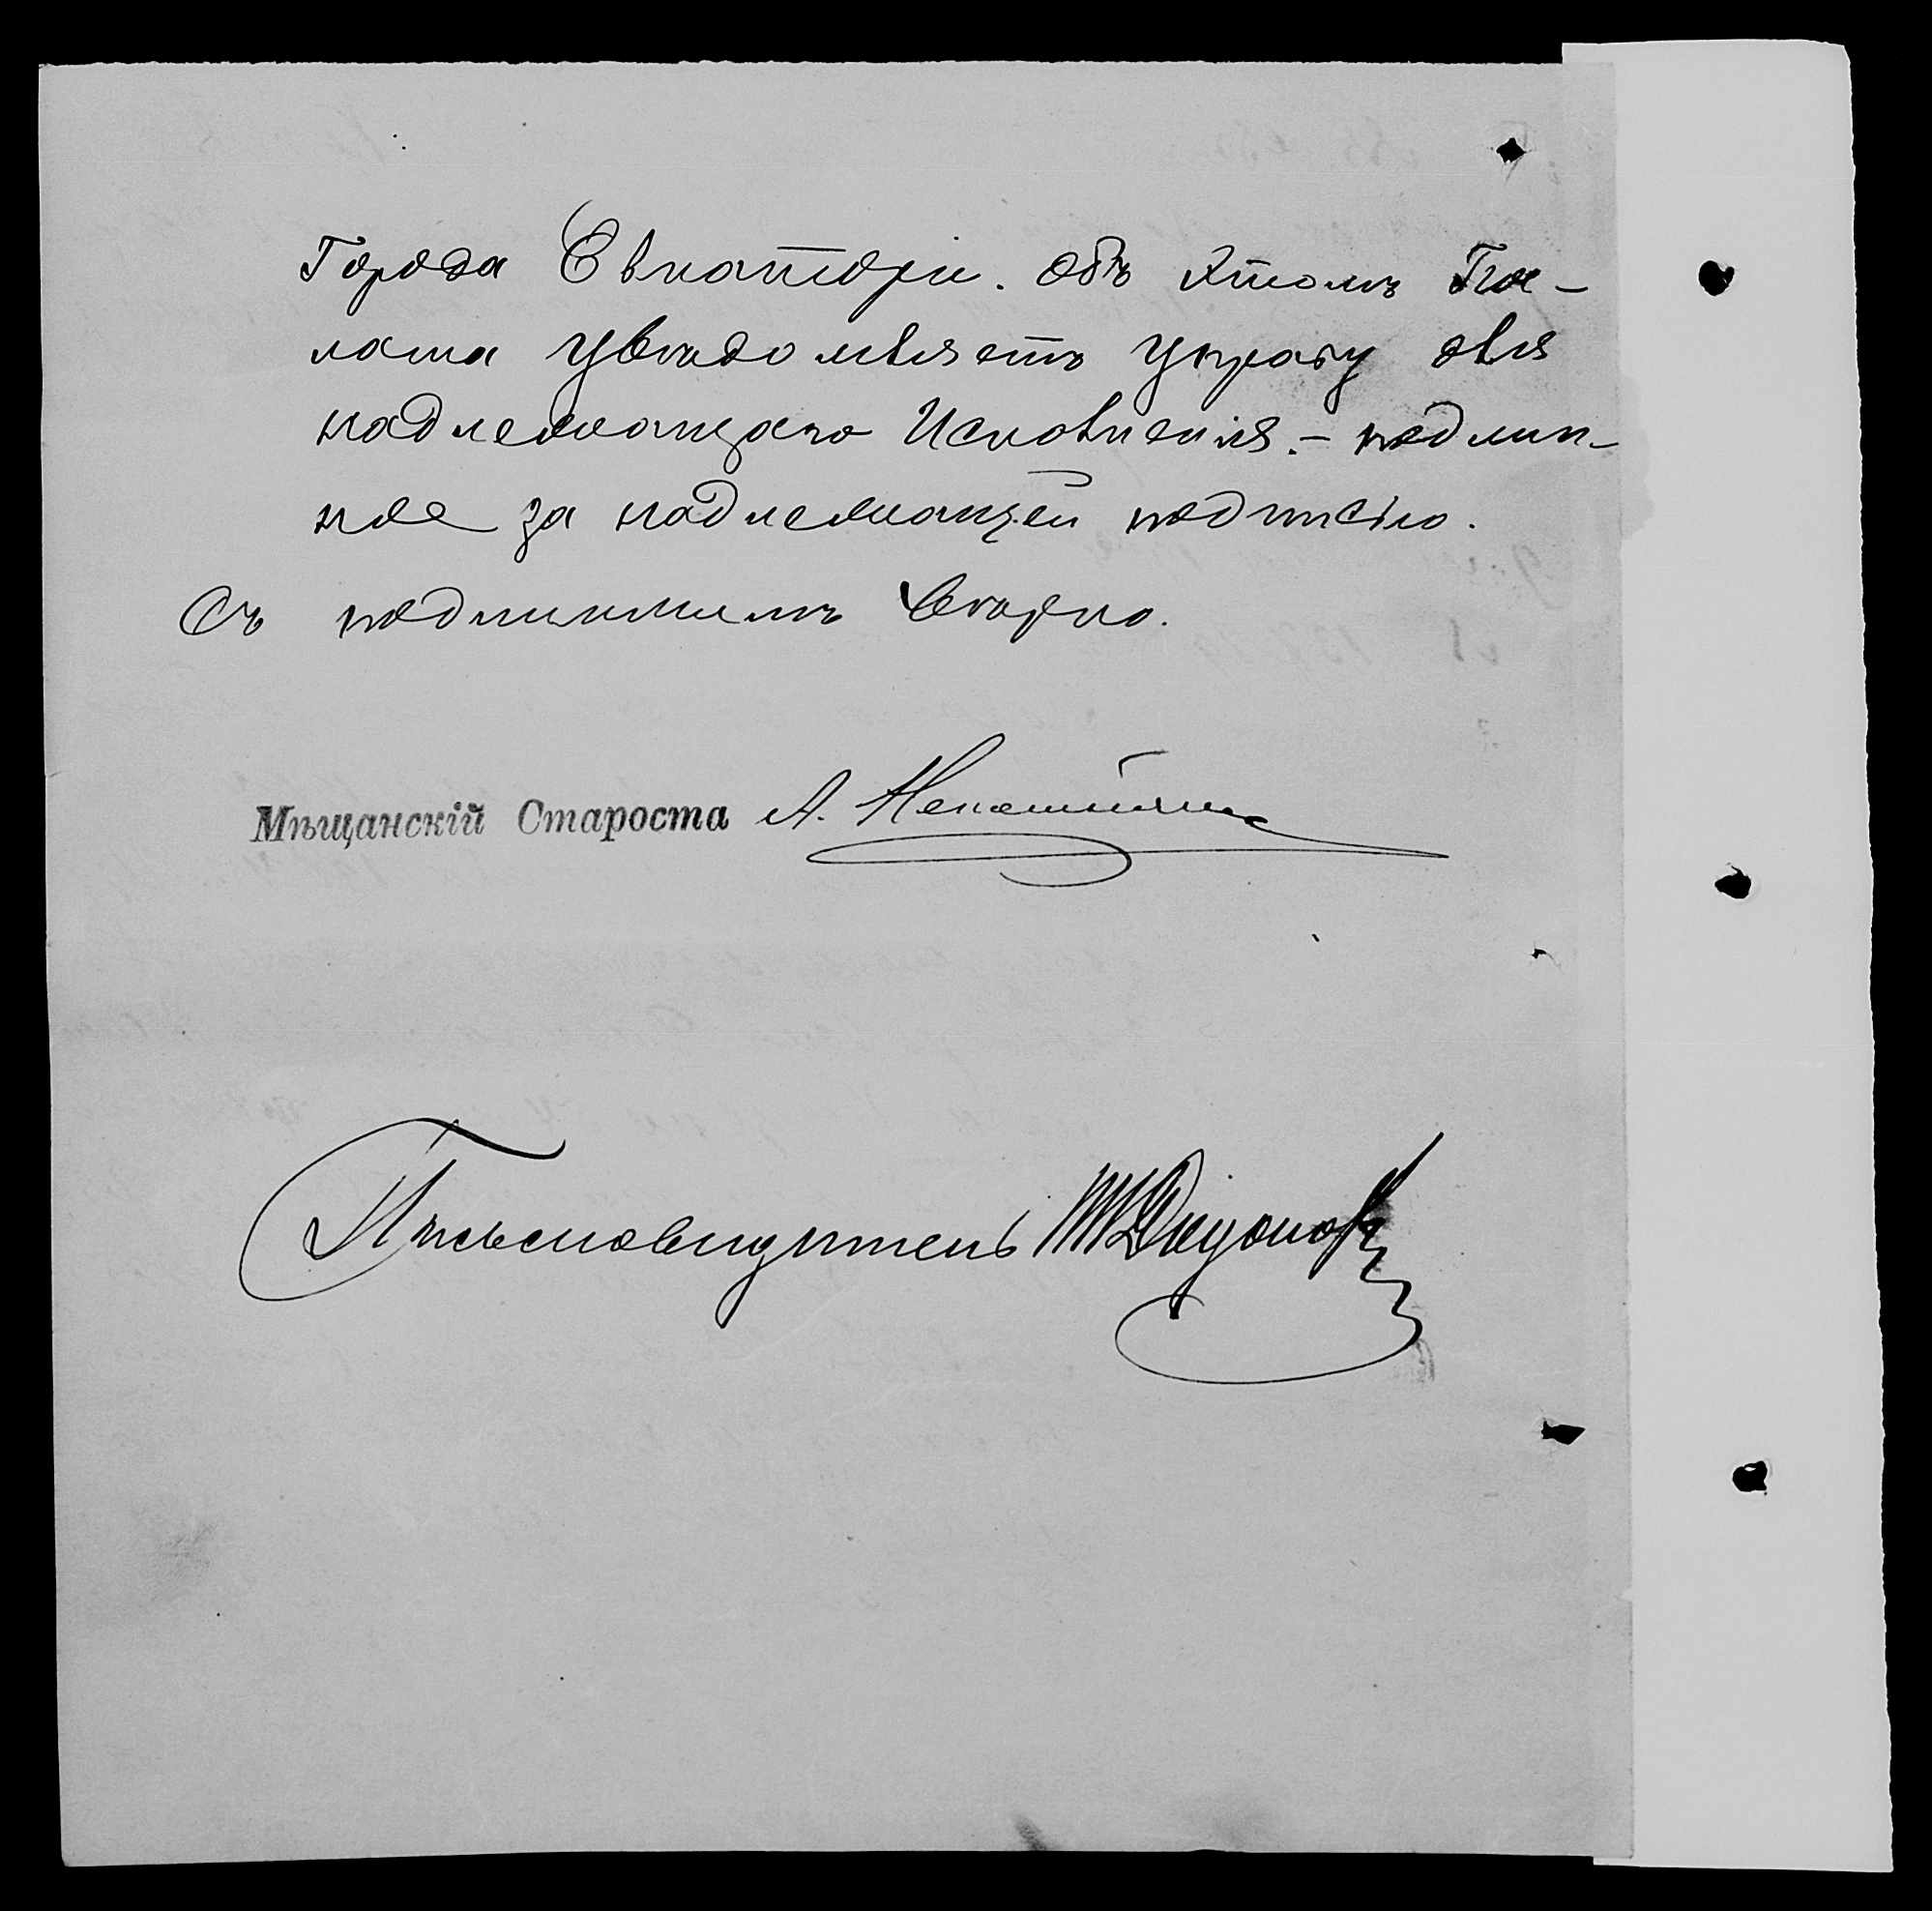 Города Евпаторіи. Объ этомъ Па-
лата увѣдомляетъ управу для
надлежащаго Исполненія. – подлин-
ное за надлежащей подписью.
Съ подлиннымъ вѣрно.
Мѣщанскій Староста А.
Письмоводитель